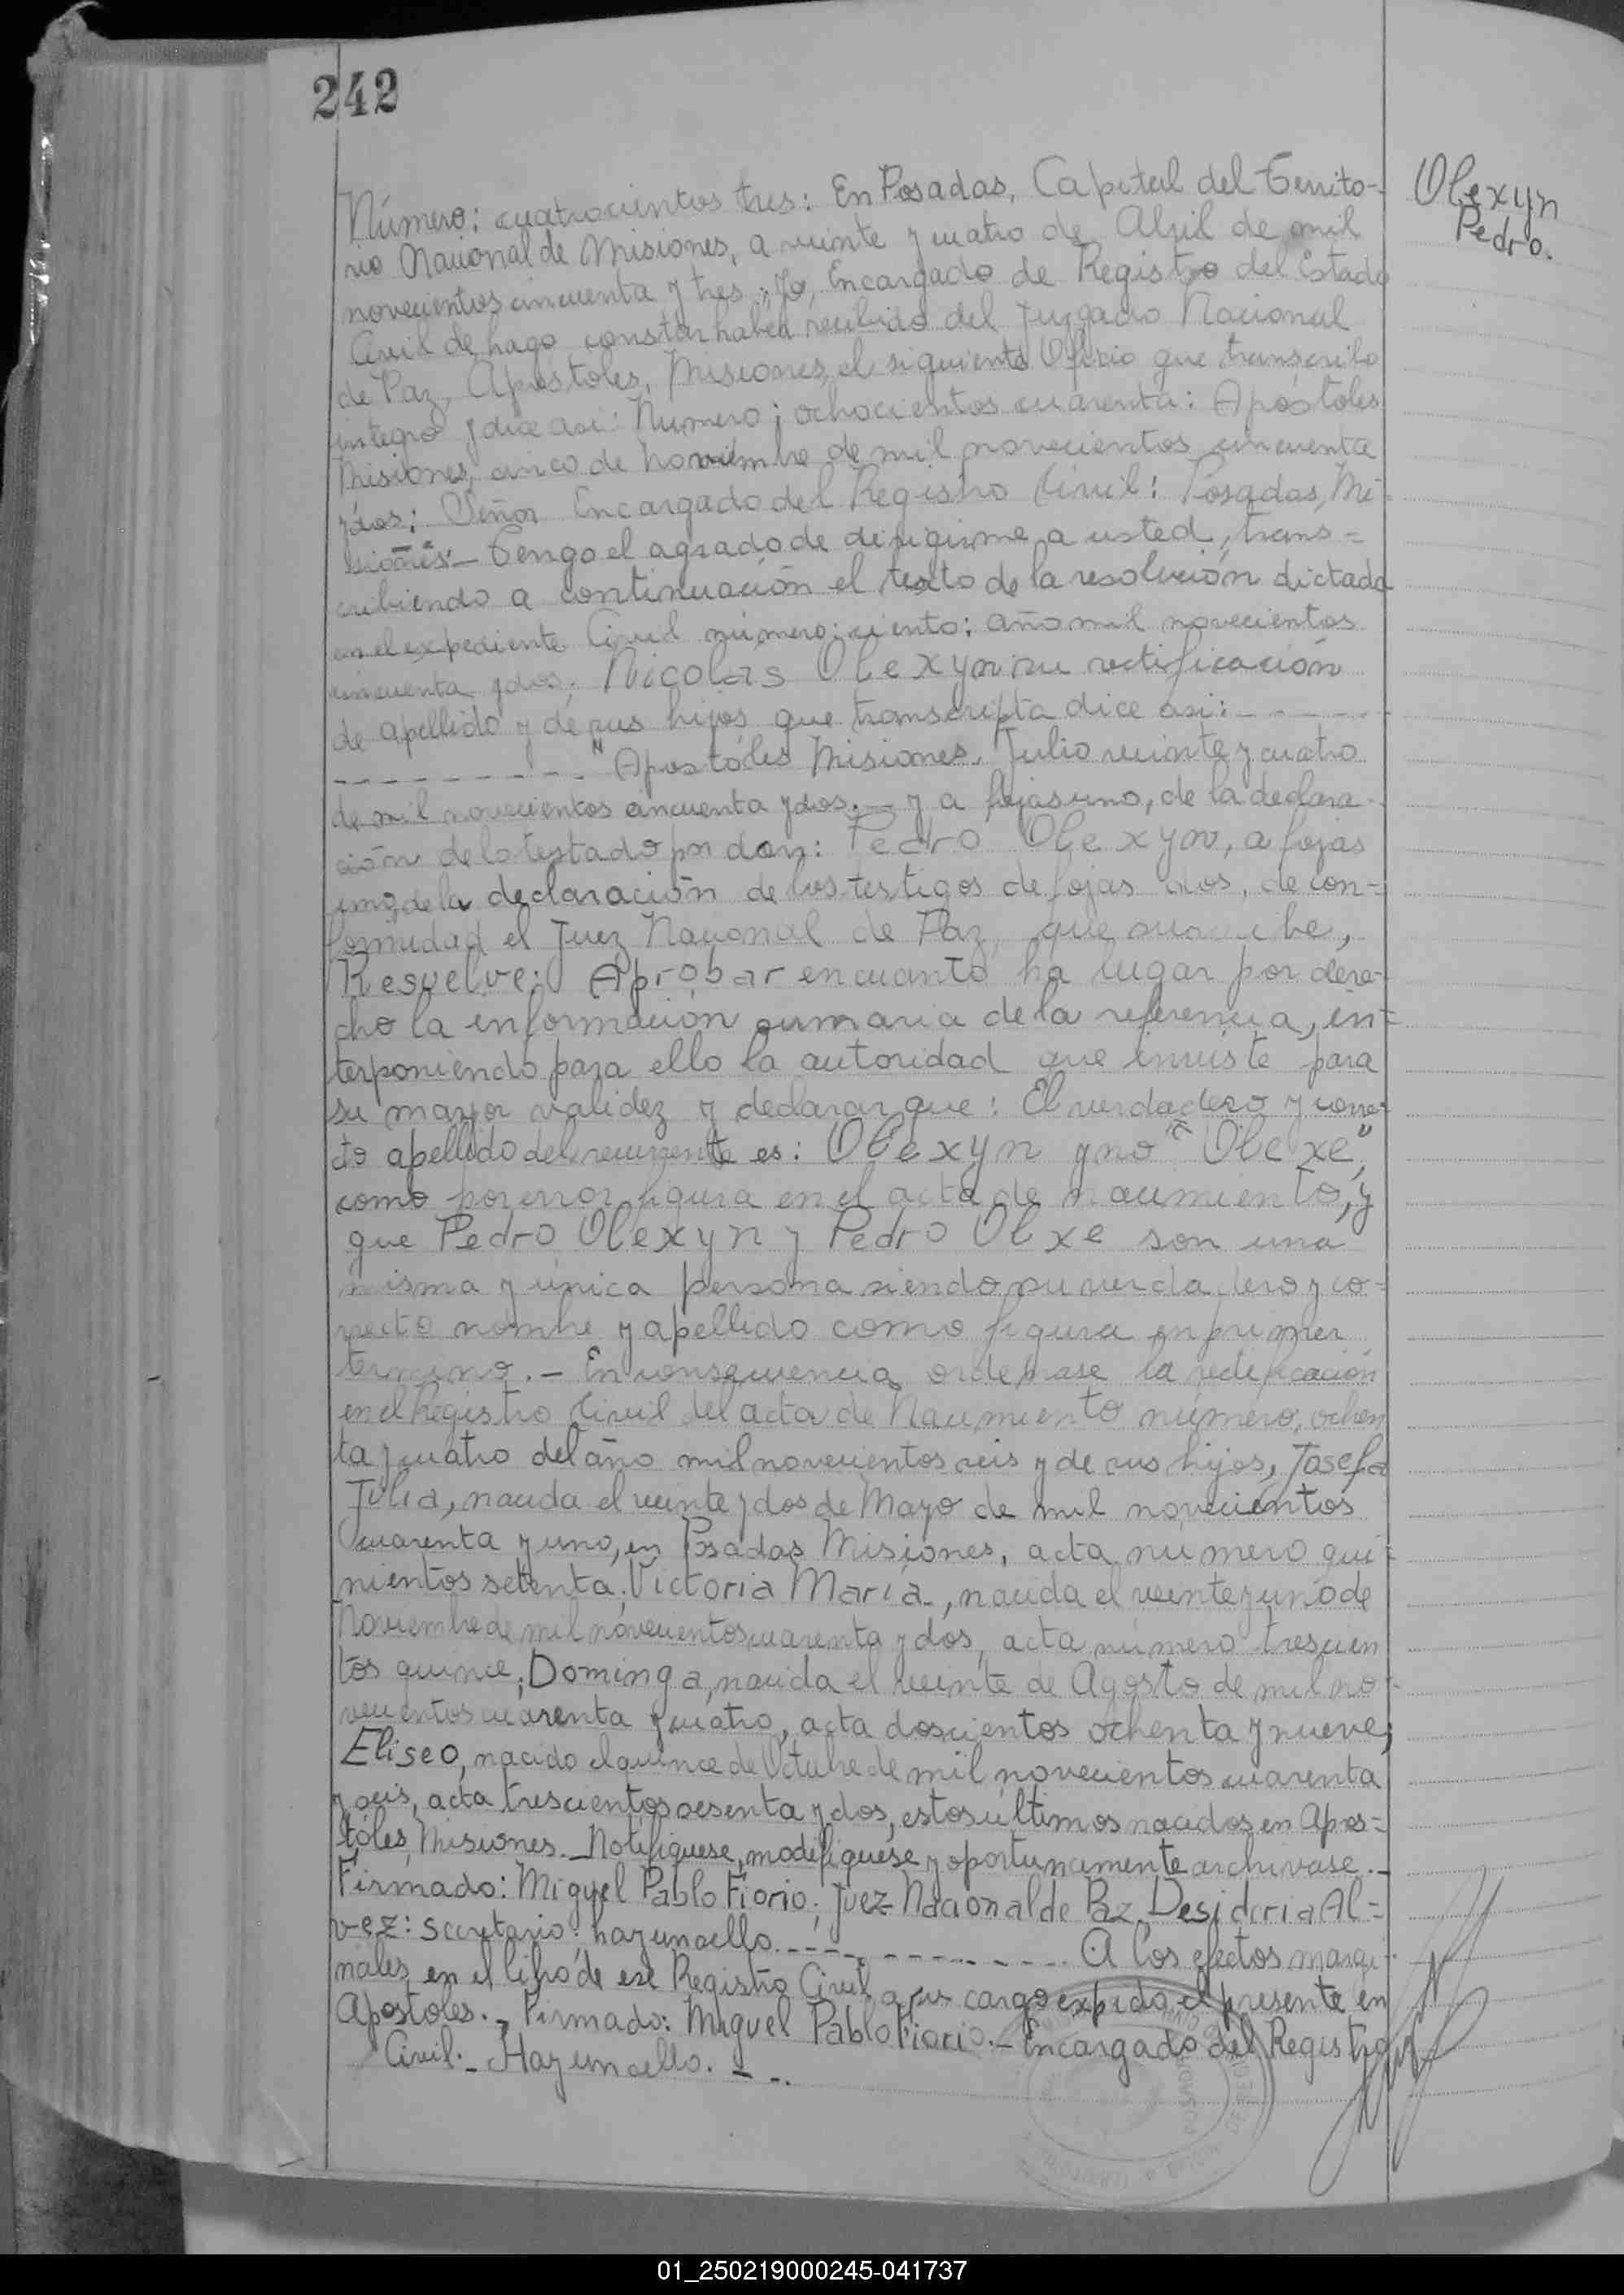 242
Número: cuatrocientos tres: En Posadas, Capital del Territo-
rio Nacional de Misiones, a veinte y cuatro de Abril de mil
novecientos cincuenta y tres, Yo, Encargado de Registro del Estado
Civil de hago constar haber recibido del Juzgado Nacional
de Paz, Apostoles, Misiones, el siguiente Oficio que transcribo
integro y dice asi: Numero; ochocientos cuarenta: Apóstoles
Misiones, cinco de noviembre de mil novecientos cincuenta
y dos: Señor Encargado del Registro Civil: Posadas, Mi-
siones:- Tengo el agrado de dirigirme a usted, trans=
cribiendo a continuación el texto de la resolución dictada
en el expediente Civil número: ciento: año mil novecientos
cincuenta y dos; Nicolás Olexyn su rectificación
de apellido y de sus hijos que transcripta dice asi: - - - -
- - - - - - - - - "Apostóles Misiones, Julio veinte y cuatro
de mil novecientos cincuenta y dos.- y a fojas uno, de la declara-
ción de lo testado por don: Pedro Olexyn, a fojas
uno, de la declaración de los testigos de fojas dos, de con=
formidad el Juez Nacional de Paz, que suscribe,
Resuelve: Aprobar en cuanto ha lugar por dere-
cho la información sumaria de la referencia, in=
terponiendo para ello la autoridad que inviste para
su mayor validez y declarar que: El verdadero y corre-
cto apellido del recurrente es: Olexyn y no "Olexe",
como por error figura en el acta de nacimiento, y
que Pedro Olexyn y Pedro Olxe son una
misma y única persona siendo su verdadero y co=
rrecto nombre y apellido como figura en primer
termino.- En consecuencia, ordenase la rectificación
en el Registro Civil del acta de Nacimiento número, ochen
ta y cuatro del año mil novecientos seis y de sus hijos, Josefa
Julia, nacida el veinte y dos de Mayo de mil novecientos
cuarenta y uno, en Posadas Misiones, acta numero qui=
nientos setenta; Victoria María, nacida el veinte y uno de
Noviembre de mil novecientos cuarenta y dos, acta número trescien
tos quince; Dominga, nacida el veinte de Agosto de mil no-
vecientos cuarenta y cuatro, acta doscientos ochenta y nueve;
Eliseo, nacido el quince de Octubre de mil novecientos cuarenta
y seis, acta trescientos sesenta y dos, estos últimos nacidos en Apos=
tóles, Misiones.- Notifiquese, modifiquese y oportunamente archivase.-
Firmado: Miguel Pablo Fiorio; Juez Nacional de Paz, Desideria Al=
vez: Secretario: hay un sello.- - - - - - - - - - A los efectos margi-
nales en el libro de ese Registro Civil a su cargo expido el presente en
Apostoles.- Firmado: Miguel Pablo Fiorio.- Encargado del Registro
Civil.- Hay un sello. - - ..
Olexyn
Pedro.
01_250219000245-041737